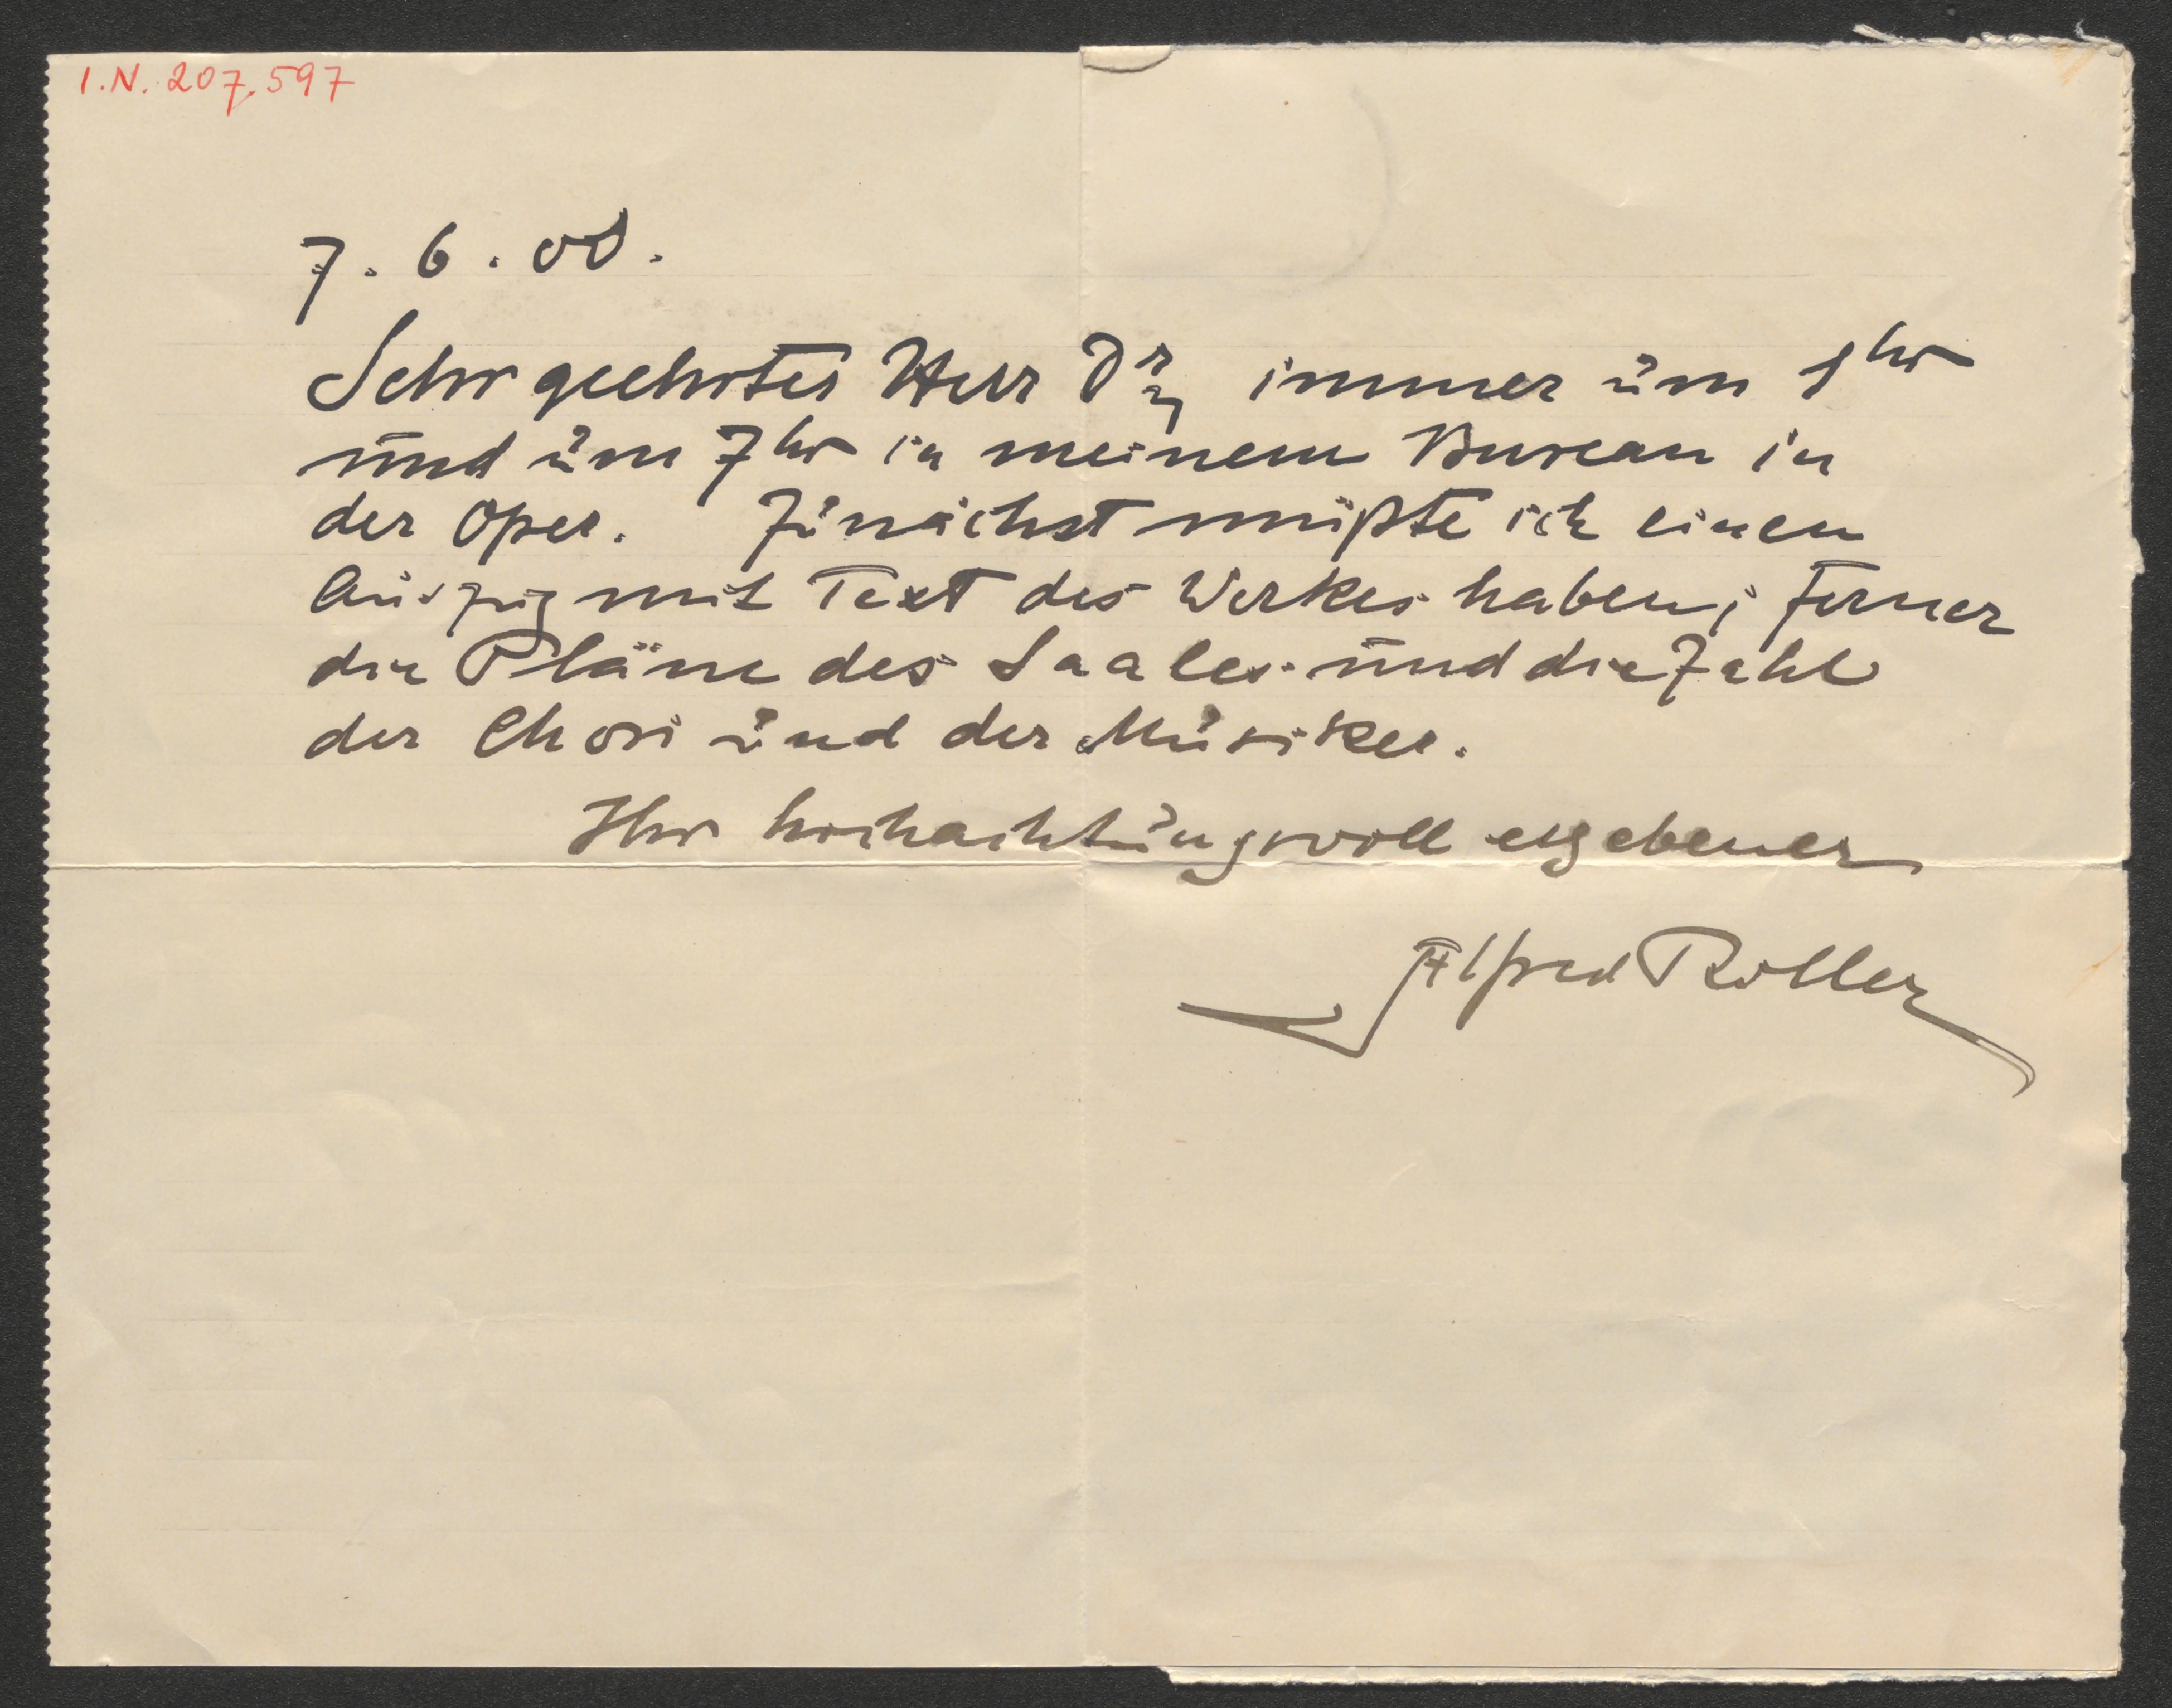 I.N. 207.597
7. 6. 08.
Sehr geehrter Herr Dr, immer um 1hr
und um 7hr in meinem Bureau in
der Oper. Zunächst müßte ich einen
Auszug mit Text des Werkes haben; ferner
die Pläne des Saales und die Zahl
der Chori und der Musiker.
Ihr hochachtungsvoll ergebener
Alfred Roller